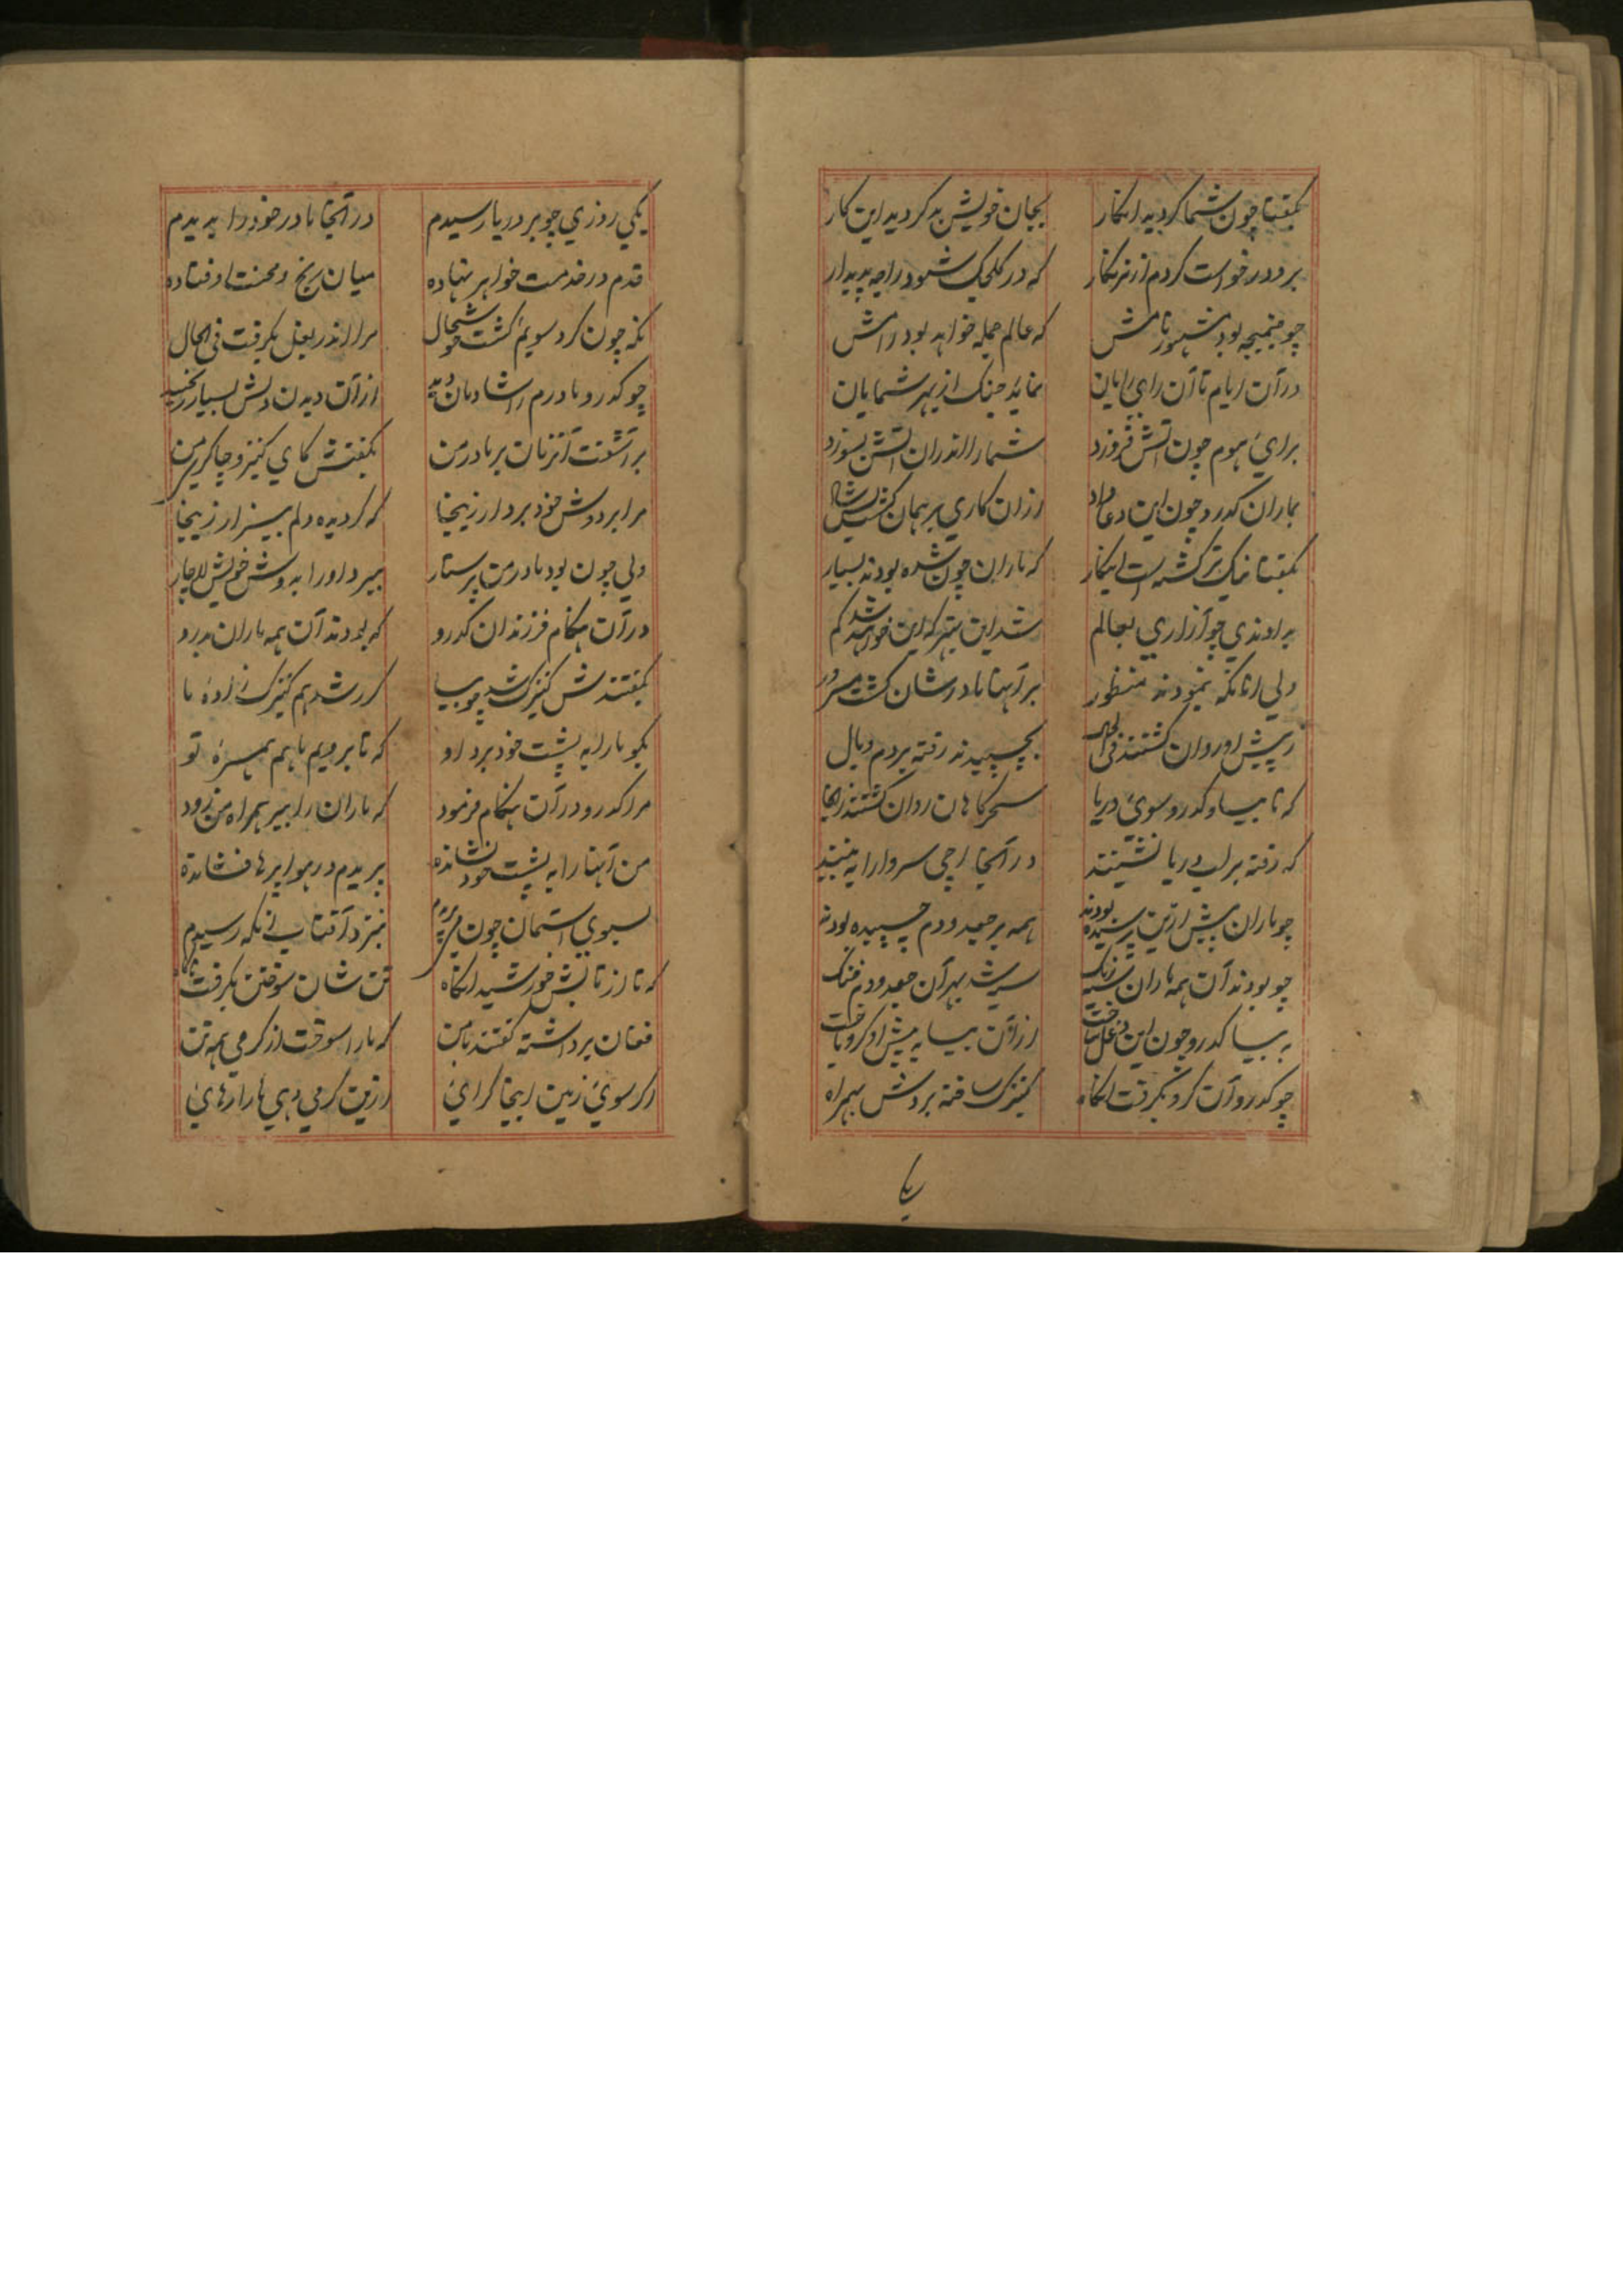 بگفتا چون شما کردید انکار بجان خویش بد کردید این کار
برو درخواست کردم از نرنکار که در کلجک شود راجه پدیدار
چو جنمیجه بود مشهور نامش که عالم جمله خواهد بود رامش
در آن ایام تا آن رای رایان نماید جنگ از بهر شمایان
برای هوم چون آتش فروزد شما را اندران آتش بسوزد
بماران کدرو چون این دعا داد از آن کاری برهمان گشت
بگفتا نیک تر گشته است اینکار که ماران چون شده بودند بسیار
براوندی چو آزاری بعالم شد این بهتر که این خود شد کم
ولی زانکه نمودند منظور بر آنها مادرشان گشت مسرور
ز پیش او روان گشتند فی الحال بچسپیدند رفته بر دم و یال
که تا بیسا و کدرو سوی دریا سحرگاهان روان گشتند زانجا
که رفته بر لب دریا نشینند در آنجا اچی سروا را ببینند
چو ماران پیش ازین پرسیده بودند همه بر جعد و دم چسپیده بودند
چو بودند آن همه ماران سیه رنگ سیه شد بهر آن جعد و دم خنگ
به بیسا کدرو چون این دغل ساخت از آن بیسا به پیش او گرو باخت
چو کدرو آن گرو بگرفت آنگاه کنیزک ساخته بردش بهمراه
یکی روزی چو بر دریا رسیدم در آنجا مادر خود را بدیدم
قدم در خدمت خواهر نهاده میان رنج و محنت اوفتاده
نگه چون کرد سویم گشت خوشحال مرا اندر بغل بگرفت فی الحال
چو کدرو مادرم را شادمان دید از آن دیدن دلش بسیار رنجید
برآشفت آنزمان بر مادر من بگفتش کای کنیز و چاکر من
مرا بر دوش خود بردار زینجا که گردیده دلم بیزار زینجا
ولی چون بود مادر من پرستار ببرد او را به دوش خویش لاچار
در آن هنگام فرزندان کدرو که بودند آن همه ماران بدرو
بگفتندش کنیزک شد چو بیسا گرر شد هم کنیزک زاده ما
بگو ما را به پشت خود برد او که تا برویم باهم همره تو
مرا کدرو در آن هنگام فرمود که ماران را ببر همراه من زود
من آنها را به پشت خود نشانده پریدم در هوا پرها فشانده
بسوی آسمان چون من پریدم بنزد آفتاب آنگه رسیدم
که تا از تابش خورشید آنگاه تن شان سوختن بگرفت
فغان برداشته گفتند با من که ما را سوخت از گرمی همه تن
اگر سوی زمین اینجا گرائی ازین گرمی دهی ما را رهائی